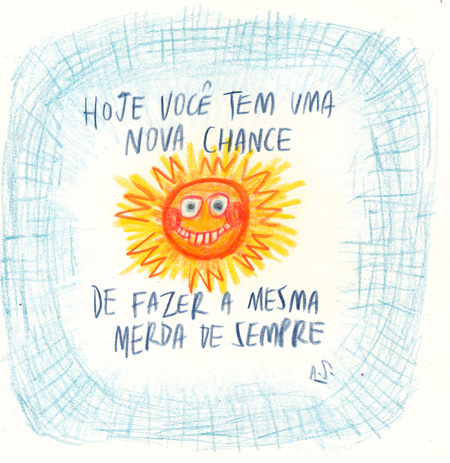 HOJE VOCÊ TEM UMA
NOVA CHANCE
DE FAZER A MESMA
MERDA DE SEMPRE
A.S.